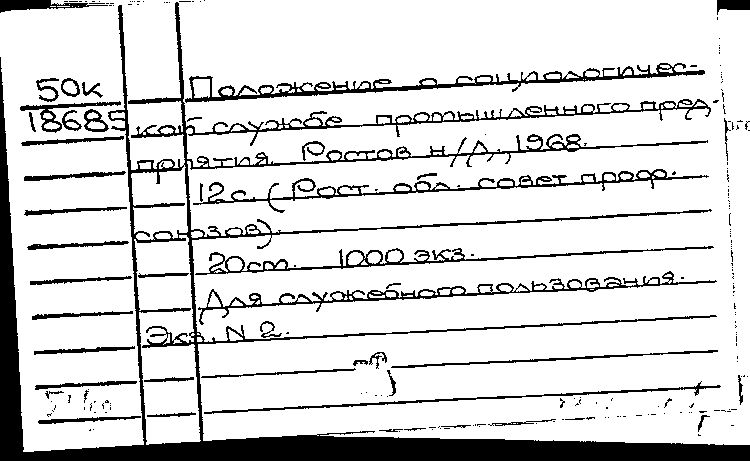 50к Положение о социологичес-
18685 кой службе промышленного пред-
приятия. Ростов н/Д., 1968.
12с. (Рост. обл. совет проф.
союзов).
20cm. 1000 экз.
Для служебного пользования.
Экз. N 2.